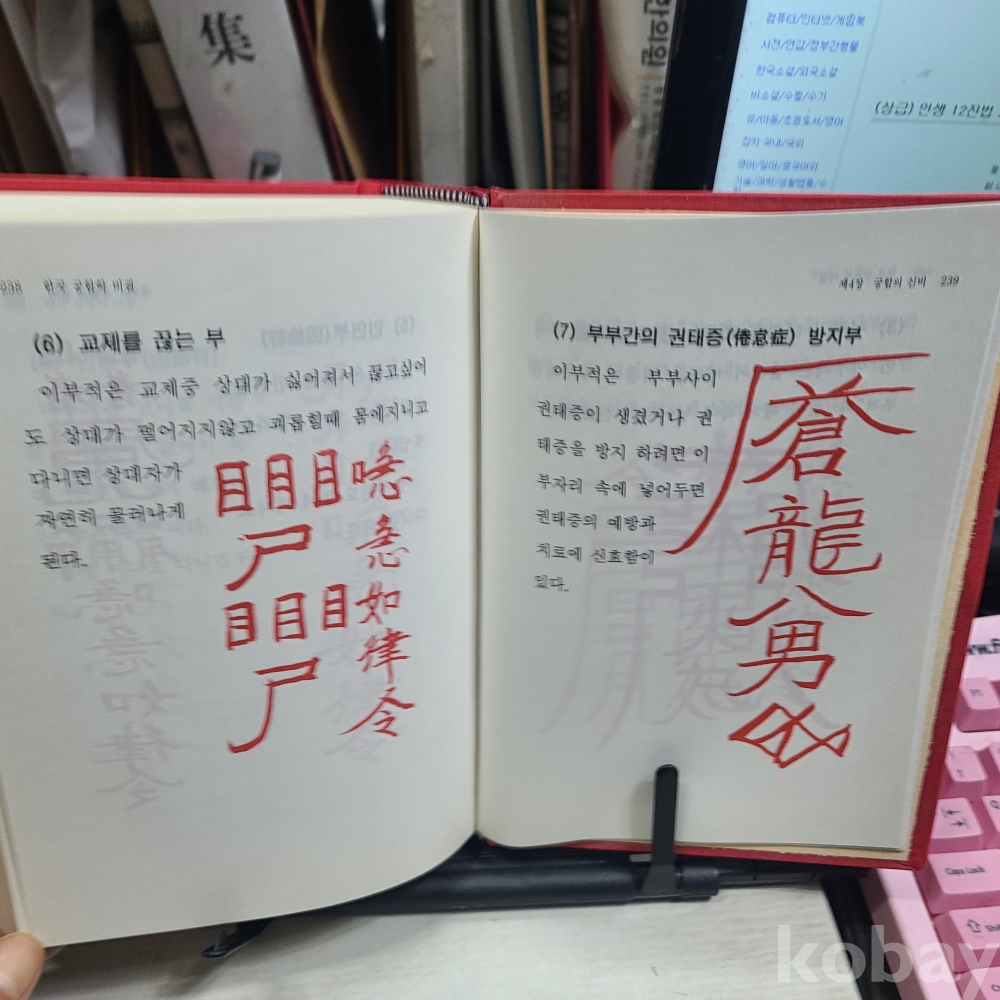 集
한의원
컴퓨터/인터넷/게임북
사전/연감/정부간행물
한국소설/외국소설
비소설/수필/수기
유/아동/초등도서/영어
잡지 국내/국외
영어/일어/중국어외
(상급) 인생 12진법
238 한국 궁합학 비전
(6) 교제를 끊는 부
이부적은 교제중 상대가 싫어져서 끊고싶어
도 상대가 떨어지지않고 괴롭힐때 몸에지니고
다니면 상대자가
자연히 물러나게
된다.
目月目
尸
目目目
尸
唵
急
如
律
令
제4장 궁합의 신비 239
(7) 부부간의 권태증(倦怠症) 방지부
이부적은 부부사이
권태증이 생겼거나 권
태증을 방지 하려면 이
부자리 속에 넣어두면
권태증의 예방과
치료에 신효함이
있다.
蒼
龍
男
Caps Lock
Shift
kobay